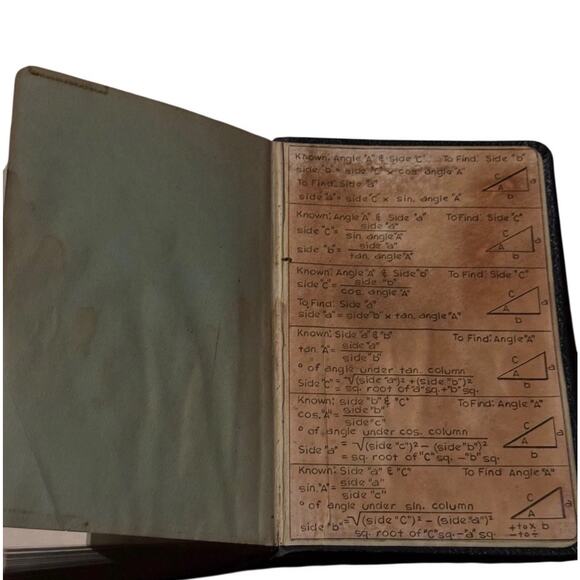 Known: Angle "A" & Side "C" To Find: Side "b"
side "b" = side "C" x cos. angle "A"
To Find: Side "a"
side "a" = side C x sin. angle "A"
C
A
a
b
Known: Angle "A" & Side "a" To Find: Side "C"
side "C" = side "a"
sin. angle "A"
side "b" = side "a"
tan. angle "A"
C
A
a
b
Known: Angle "A" & Side "b" To Find: Side "C"
side "C" = side "b"
cos. angle "A"
To Find: Side "a"
side "a" = side "b" x tan. angle "A"
C
A
a
b
Known: Side "a" & "b" To Find: Angle "A"
tan. "A" = side "a"
side "b"
° of angle under tan. column
Side "c" = √(side "a")² + (side "b")²
= sq. root of "a" sq. + "b" sq.
C
A
a
b
Known: side "b" & "C" To Find: Angle "A"
cos. "A" = side "b"
side "c"
° of angle under cos. column
Side "a" = √(side "c")² - (side "b")²
= sq. root of "C" sq. - "b" sq.
C
A
a
b
Known: Side "a" & "C" To Find Angle "A"
sin. "A" = side "a"
side "c"
° of angle under sin. column
side "b" = √(side "C")² - (side "a")²
sq. root of "C" sq. - "a" sq.
C
A
a
b
+ to x
- to ÷